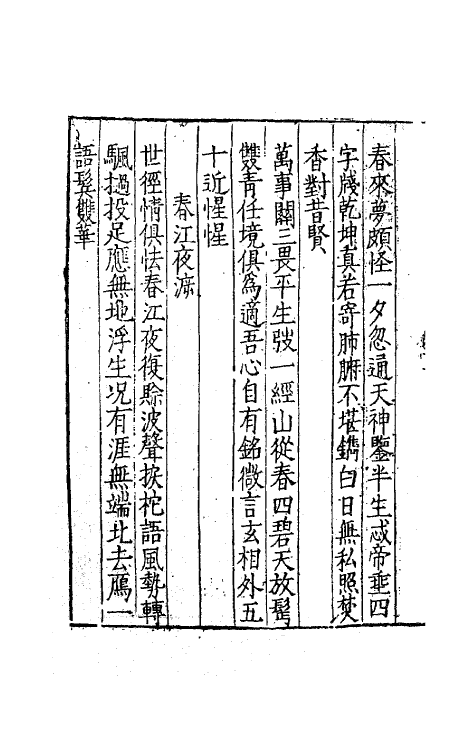 春來夢頗怪一夕忽通天神鑒半生忒帝垂四
字牋乾坤真若寄肺腑不堪鐫白日無私照焚
香對昔賢
萬事關三畏平生弢一經山從春四碧天放髩
雙青任境俱為適吾心自有銘微言玄相外五
十近惺惺
春江夜㴑
世徑情俱怯春江夜復賒波聲捩柁語風勢轉
颿撾投足應無地浮生况有涯無端北去鴈一
語鬂雙華